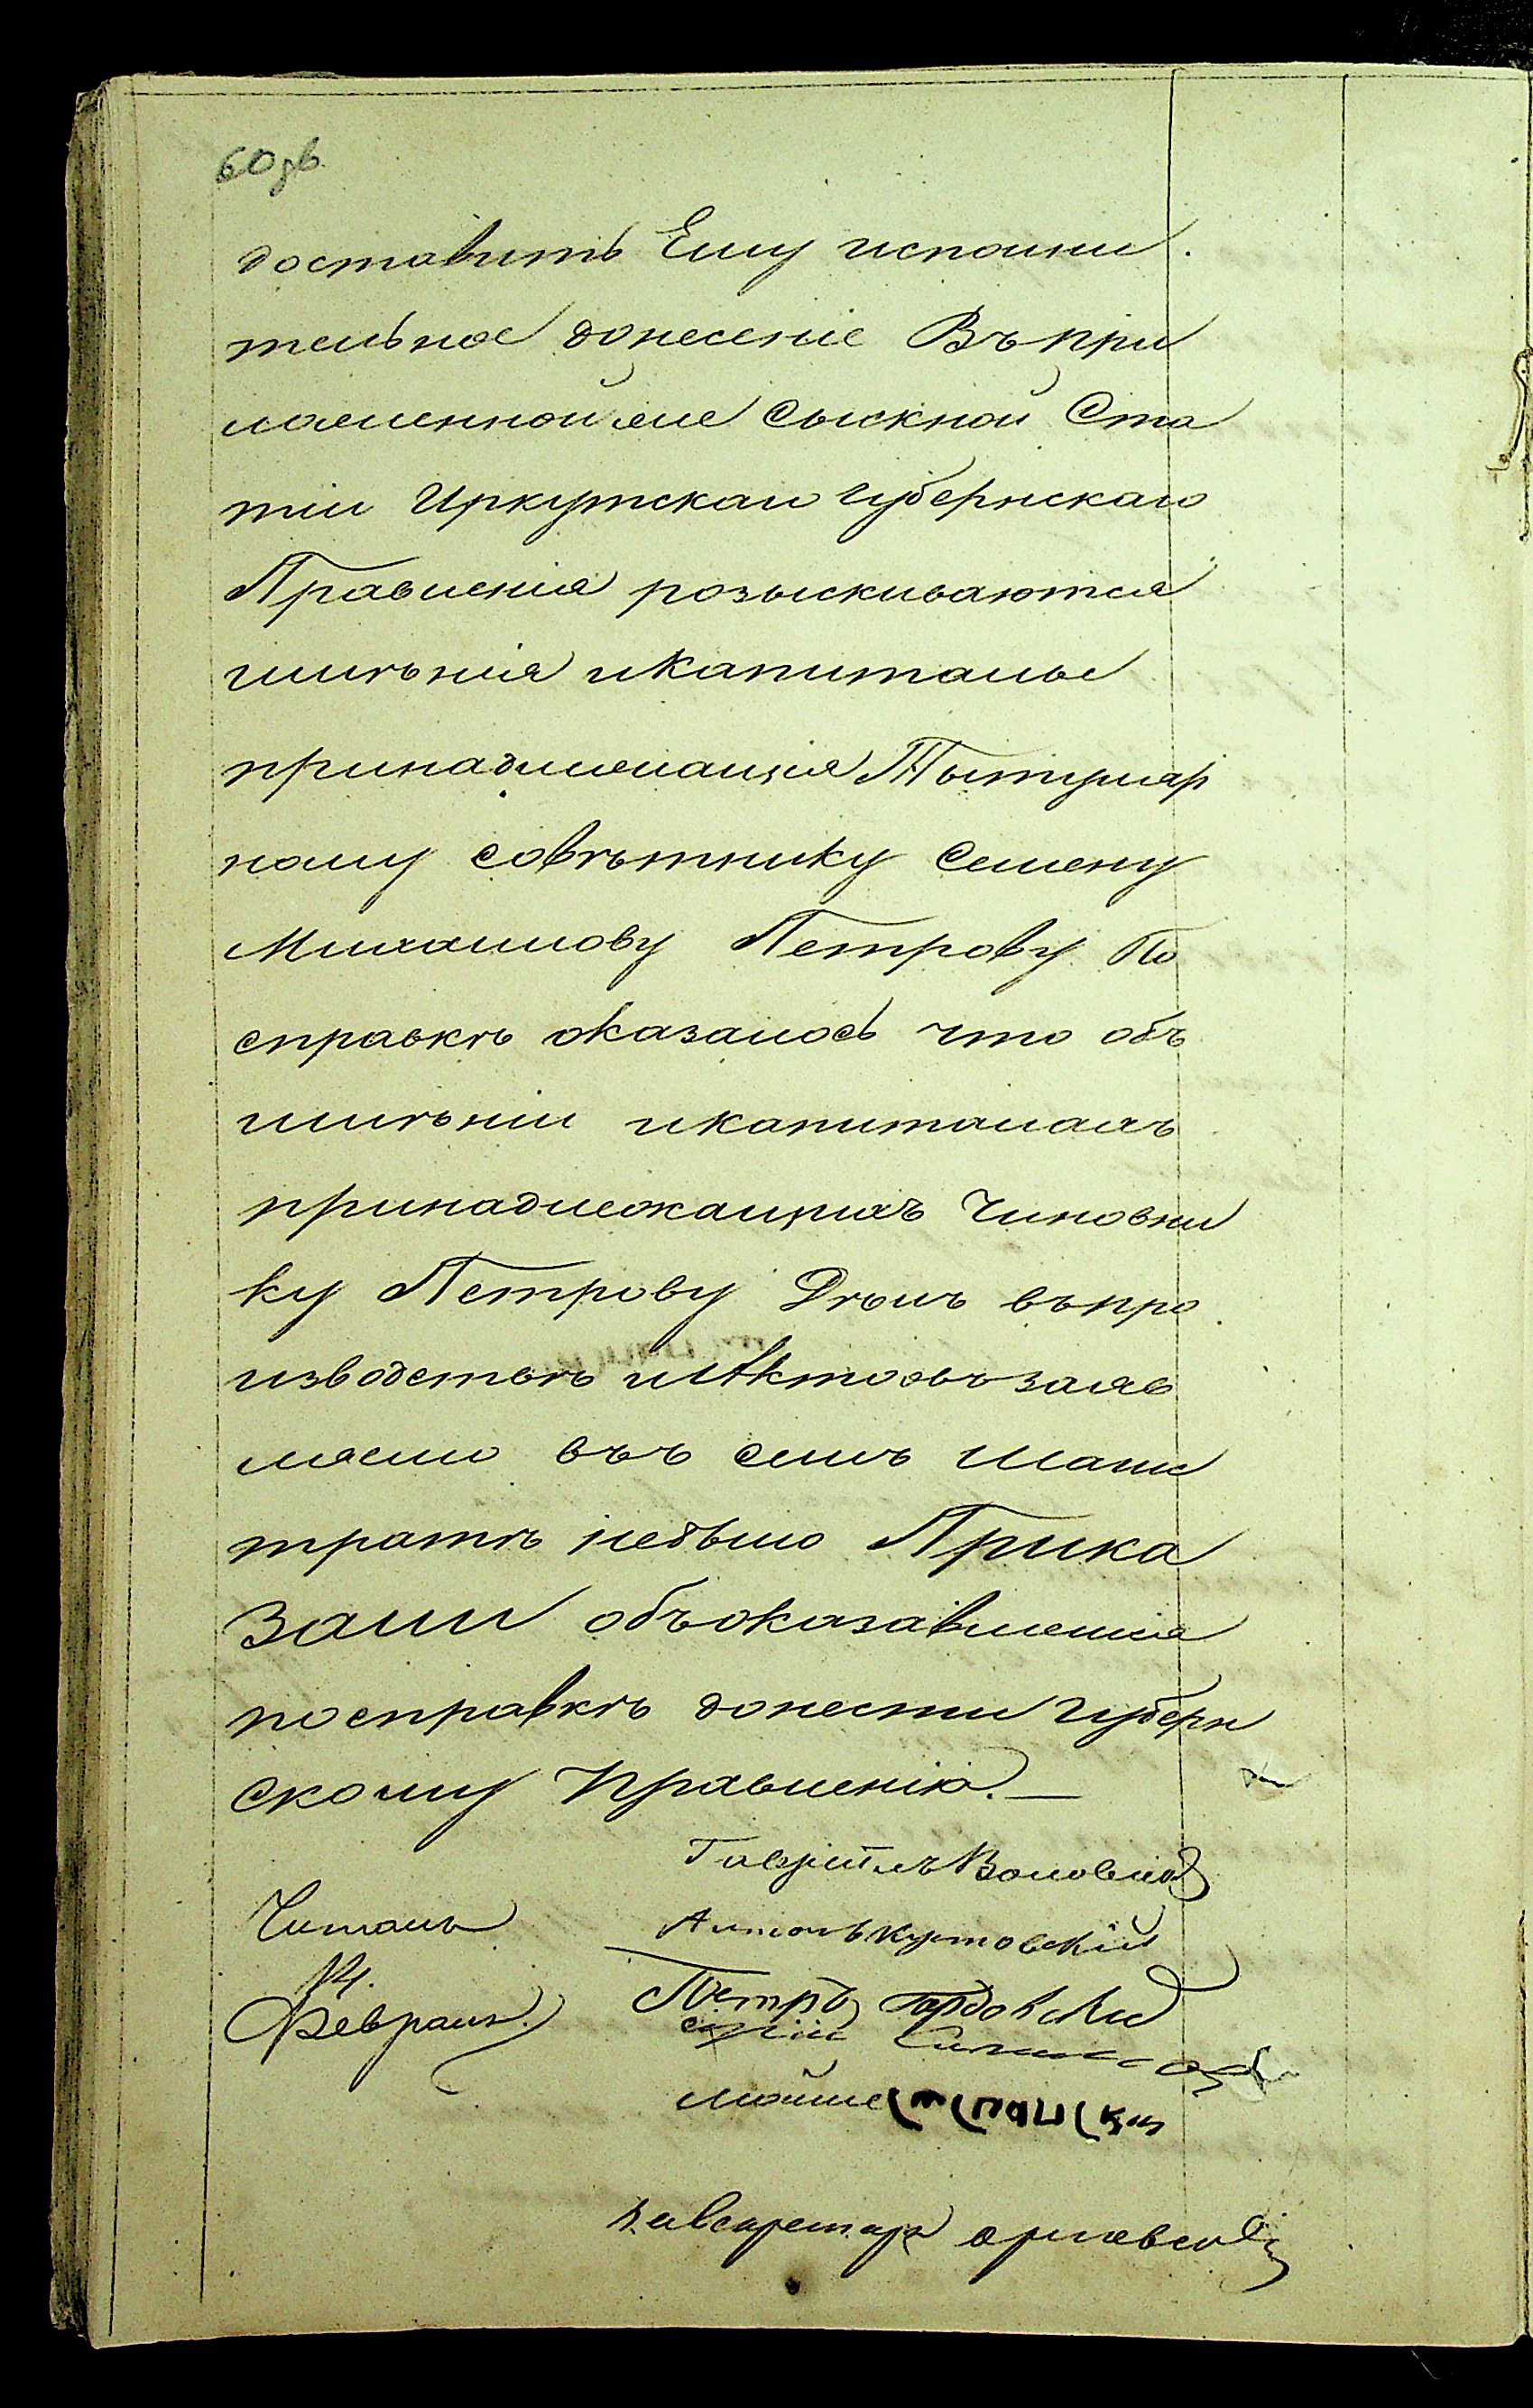 60 об.
доставить Ему исполни
тельное донесеніе Въ при
ложенной же сыскной Ста
тіи Иркутскаго губернскаго
Правленія розыскиваются
имѣнія и капиталы
принадлежащія Тытуляр
ному совѣтнику Семену
Михаилову Петрову. По
справкѣ оказалось что объ
имѣніи и капиталахъ
принадлежащихъ Чиновни
ку Петрову Дѣлъ въ про
изводствѣ и Актовъ заяв
ляемо въ семъ Магис
тратѣ небыло Прика
зали объ оказавшемся
по справкѣ донести губерн
скому Правленію.—
Гавріилъ
Читалъ
Антонъ Кутовскій
14.
Февраля.
Петръ
Мойше
За секретаря